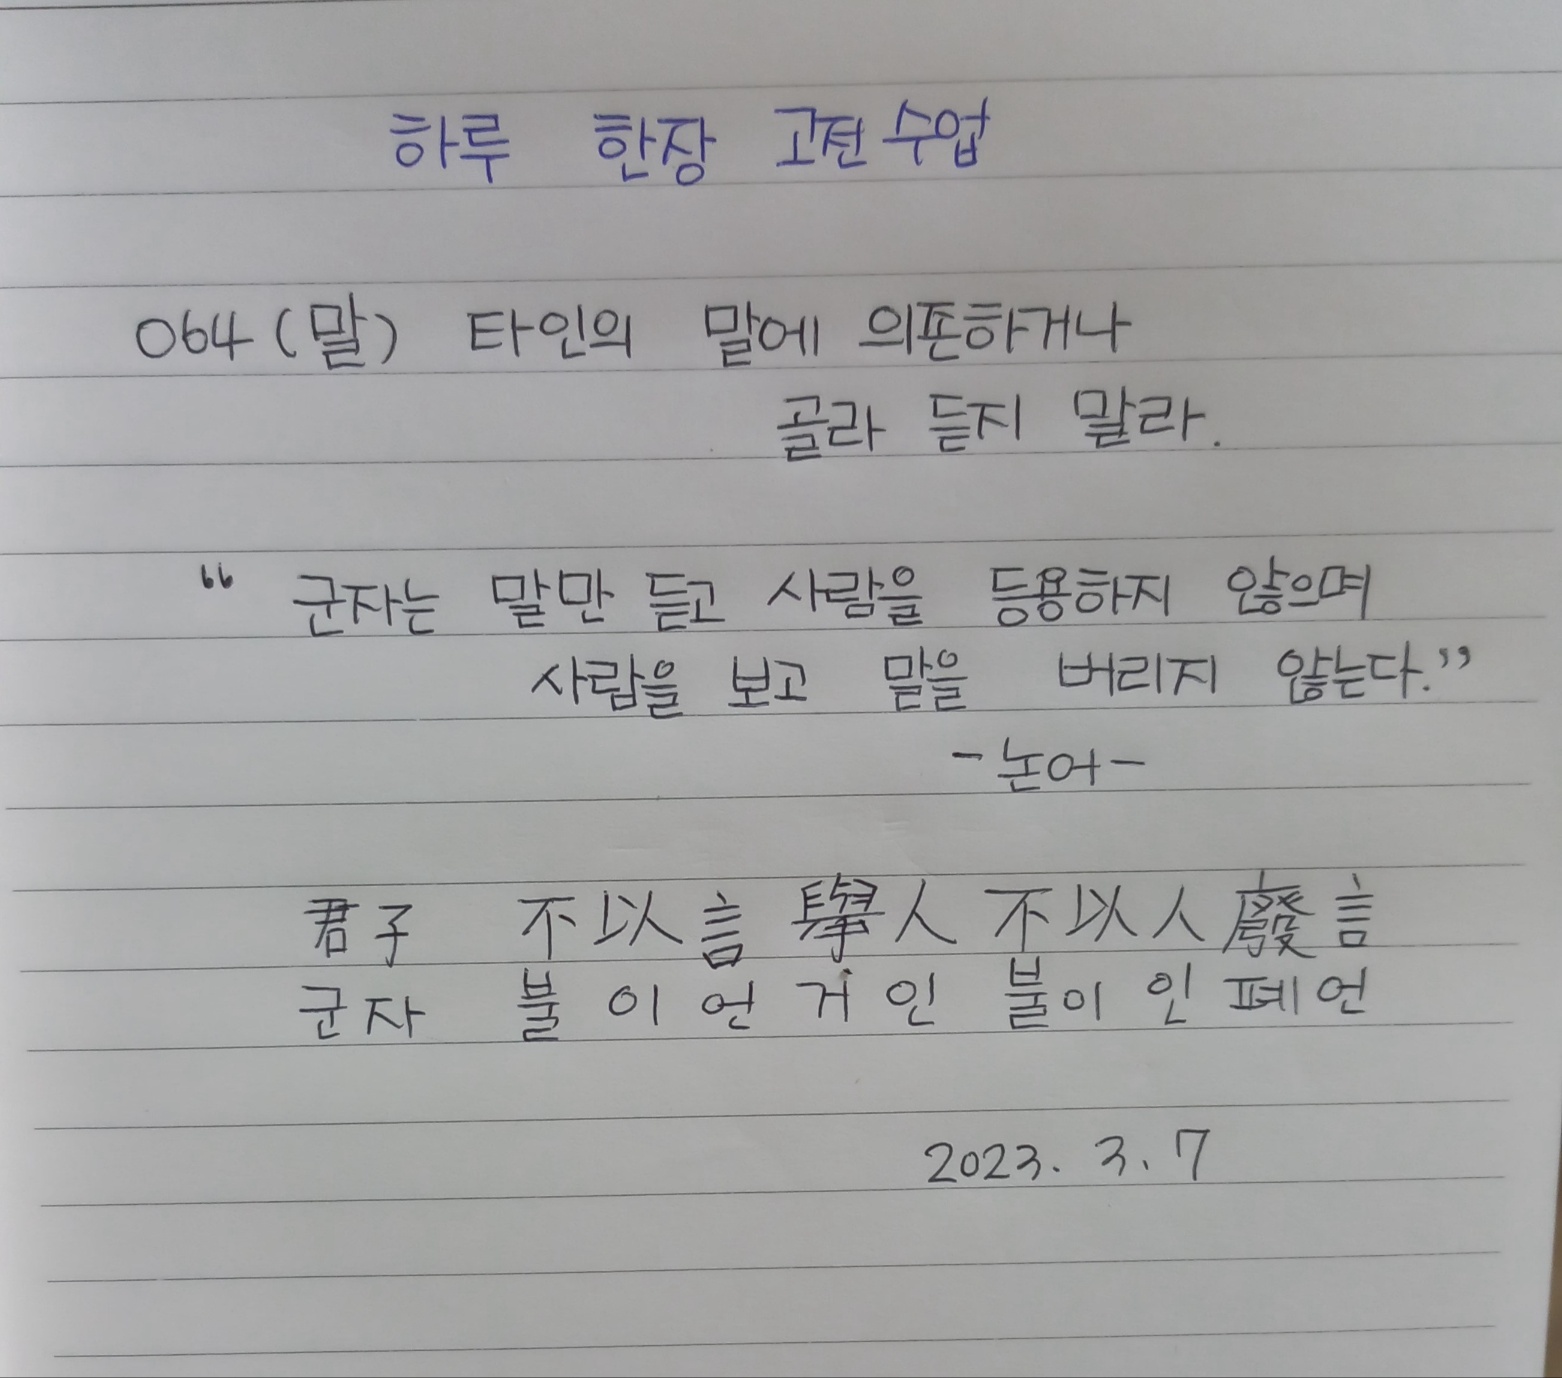 하루 한장 고전 수업
064 (말) 타인의 말에 의존하거나
골라 듣지 말라.
“ 군자는 말만 듣고 사람을 등용하지 않으며
사람을 보고 말을 버리지 않는다.”
- 논어 -
君子 不以言擧人 不以人廢言
군자 불이언거인 불이인폐언
2023. 3. 7